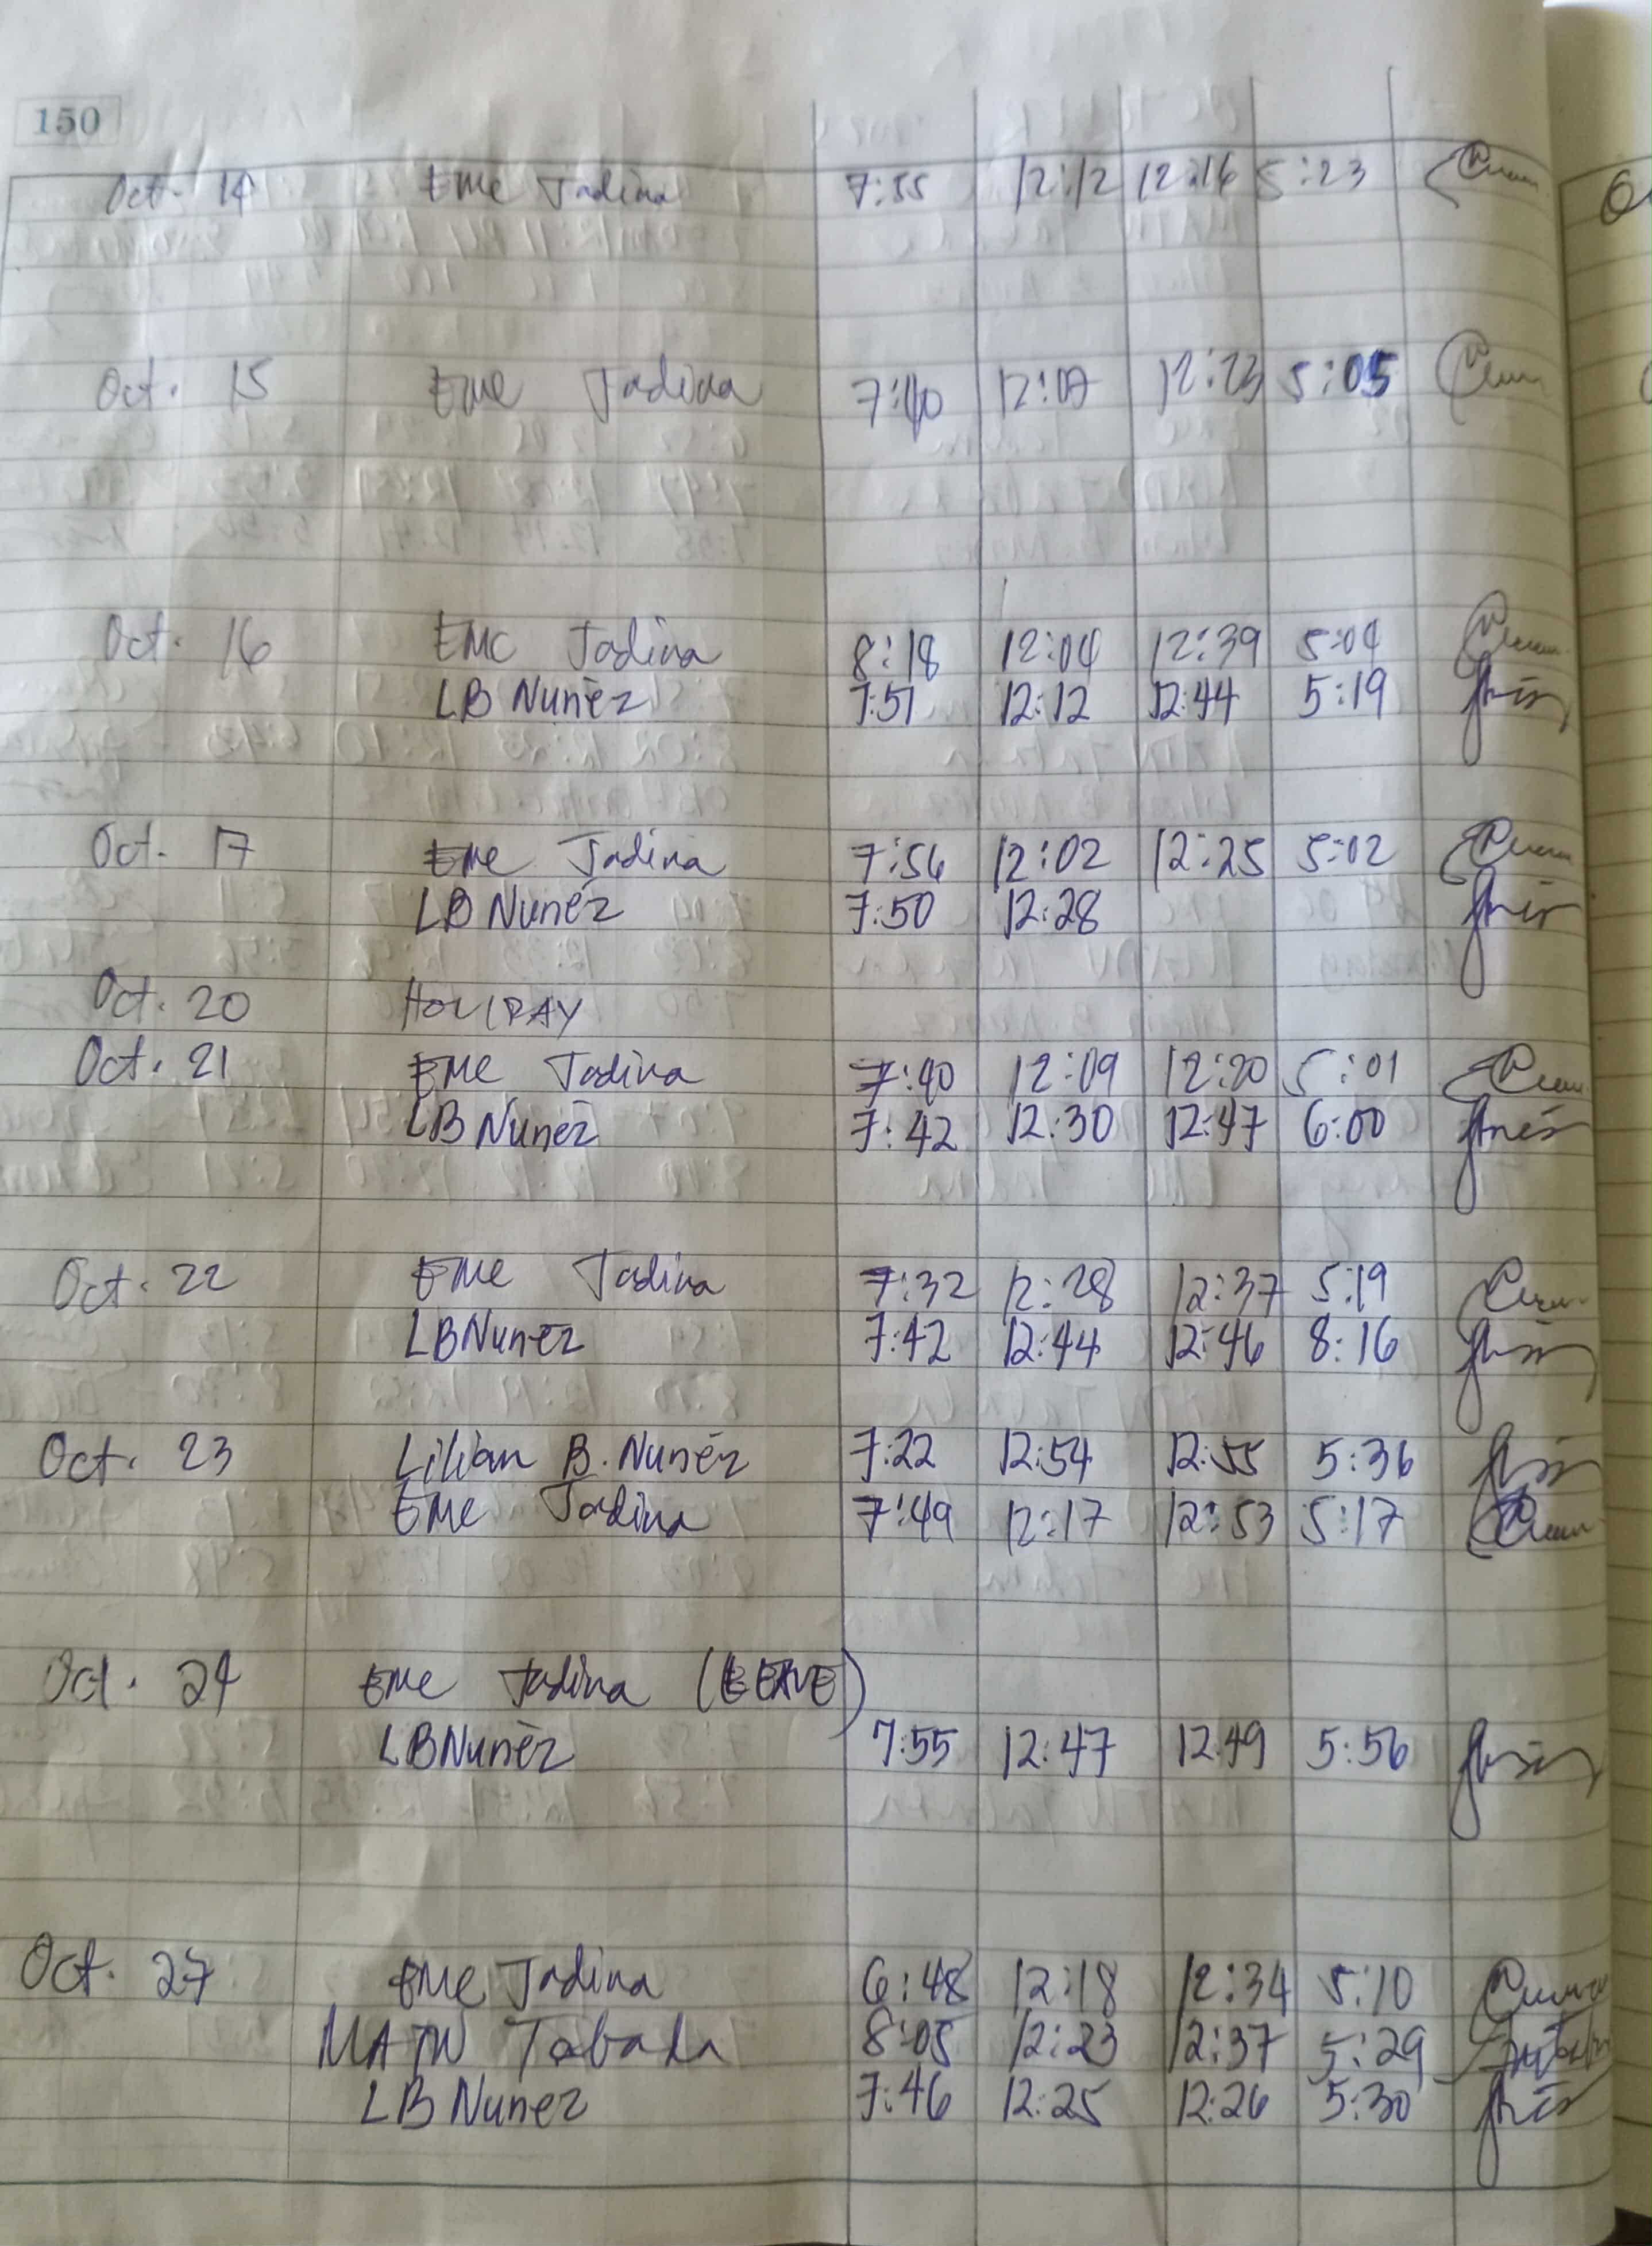 150
Oct. 14 EMC Jadina 7:55 12:12 12:16 5:23
Oct. 15 EMC Jadina 7:40 12:07 12:23 5:05
Oct. 16 EMC Jadina 8:18 12:04 12:39 5:04
LB Nuñez 7:51 12:12 12:44 5:19
Oct. 17 EMC Jadina 7:56 12:02 12:25 5:02
LB Nuñez 7:50 12:28
Oct. 20 HOLIDAY
Oct. 21 EMC Jadina 7:40 12:09 12:20 5:01
LB Nuñez 7:42 12:30 12:47 6:00
Oct. 22 EMC Jadina 7:32 12:28 12:37 5:19
LBNuñez 7:42 12:44 12:46 8:16
Oct. 23 Lilian B. Nuñez 7:22 12:54 12:55 5:36
EMC Jadina 7:49 12:17 12:53 5:17
Oct. 24 EMC Jadina (LEAVE)
LBNuñez 7:55 12:47 12:49 5:56
Oct. 27 EMC Jadina 6:48 12:18 12:34 5:10
MATN 8:05 12:23 12:37 5:29
LB Nunez 7:46 12:25 12:26 5:30